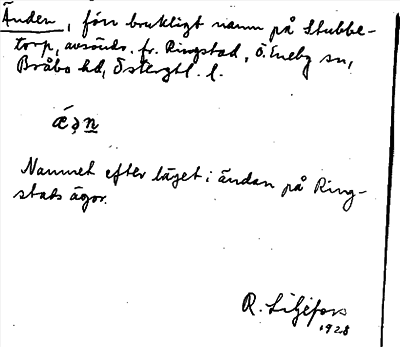 Änden, förr brukligt namn på Stubbe-
torp, avsönds. fr. Ringstad, Ö. Eneby sn,
Bråbo hd, Östergtl. l.
ǽn̥n
Namnet efter läget i ändan på Ring-
stads ägor.
R. Liljefors
1928